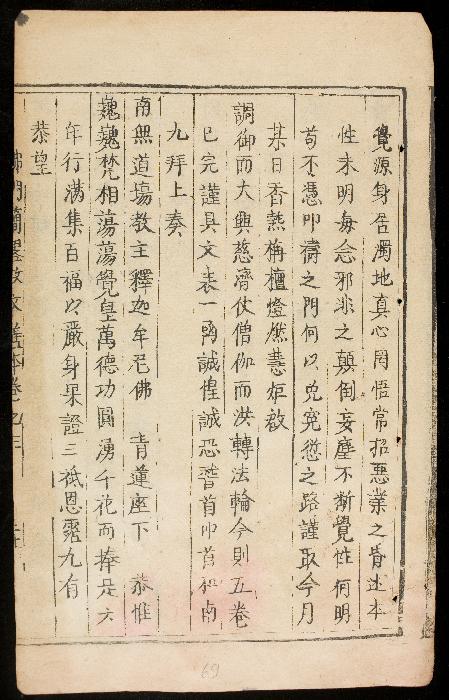 覺源身居濁地真心罔悟常招惡業之昏迷本
性未明每念邪非之顛倒妄塵不斷覺性何明
苟不憑叩禱之門何以免寃愆之路謹取今月
某日香爇栴檀燈燃慧炬啟
調御而大興慈濟仗僧伽而洪轉法輪今則五卷
已完謹具文表一函誠惶誠恐稽首叩首和南
九拜上奏
南無道場教主釋迦牟尼佛 青蓮座下 恭惟
巍巍梵相蕩蕩覺皇萬德功圓湧千花而捧足六
年行滿集百福以嚴身果證三祇恩霑九有
恭望
佛門簡 卷之三
69